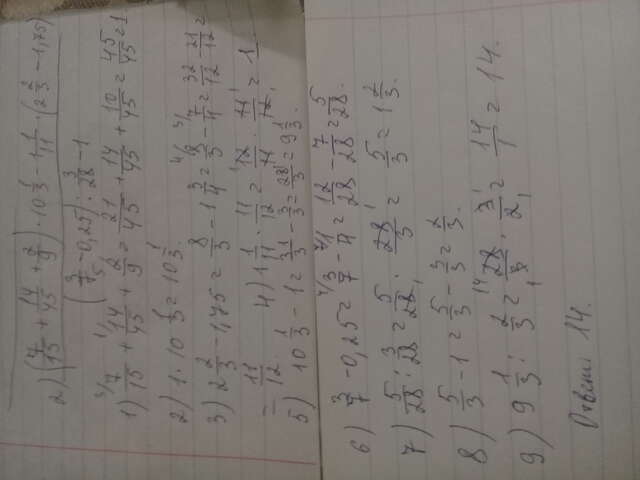 2) (7/15 + 14/45 + 2/9) · 10 1/3 − 1 1/11 · (2 2/3 − 1,75)
(3/7 − 0,25) : 3/28 − 1
1) 3/ 7/15 + 1/ 14/45 + 5/ 2/9 = 21/45 + 14/45 + 10/45 = 45/45 = 1
2) 1 · 10 1/3 = 10 1/3.
3) 2 2/3 − 1,75 = 8/3 − 1 3/4 = 4/ 8/3 − 3/ 7/4 = 32/12 − 21/12 =
= 11/12. 4) 1 1/11 · 11/12 = 12/11 · 11/12 = 1
5) 10 1/3 − 1 = 31/3 − 3/3 = 28/3 = 9 1/3.
6) 3/7 − 0,25 = 4/ 3/7 − 7/ 1/4 = 12/28 − 7/28 = 5/28.
7) 5/28 : 3/28 = 5/28 · 28/3 = 5/3 = 1 2/3.
8) 5/3 − 1 = 5/3 − 3/3 = 2/3.
9) 9 1/3 : 2/3 = 28/3 · 3/2 = 14/1 = 14.
Ответ: 14.